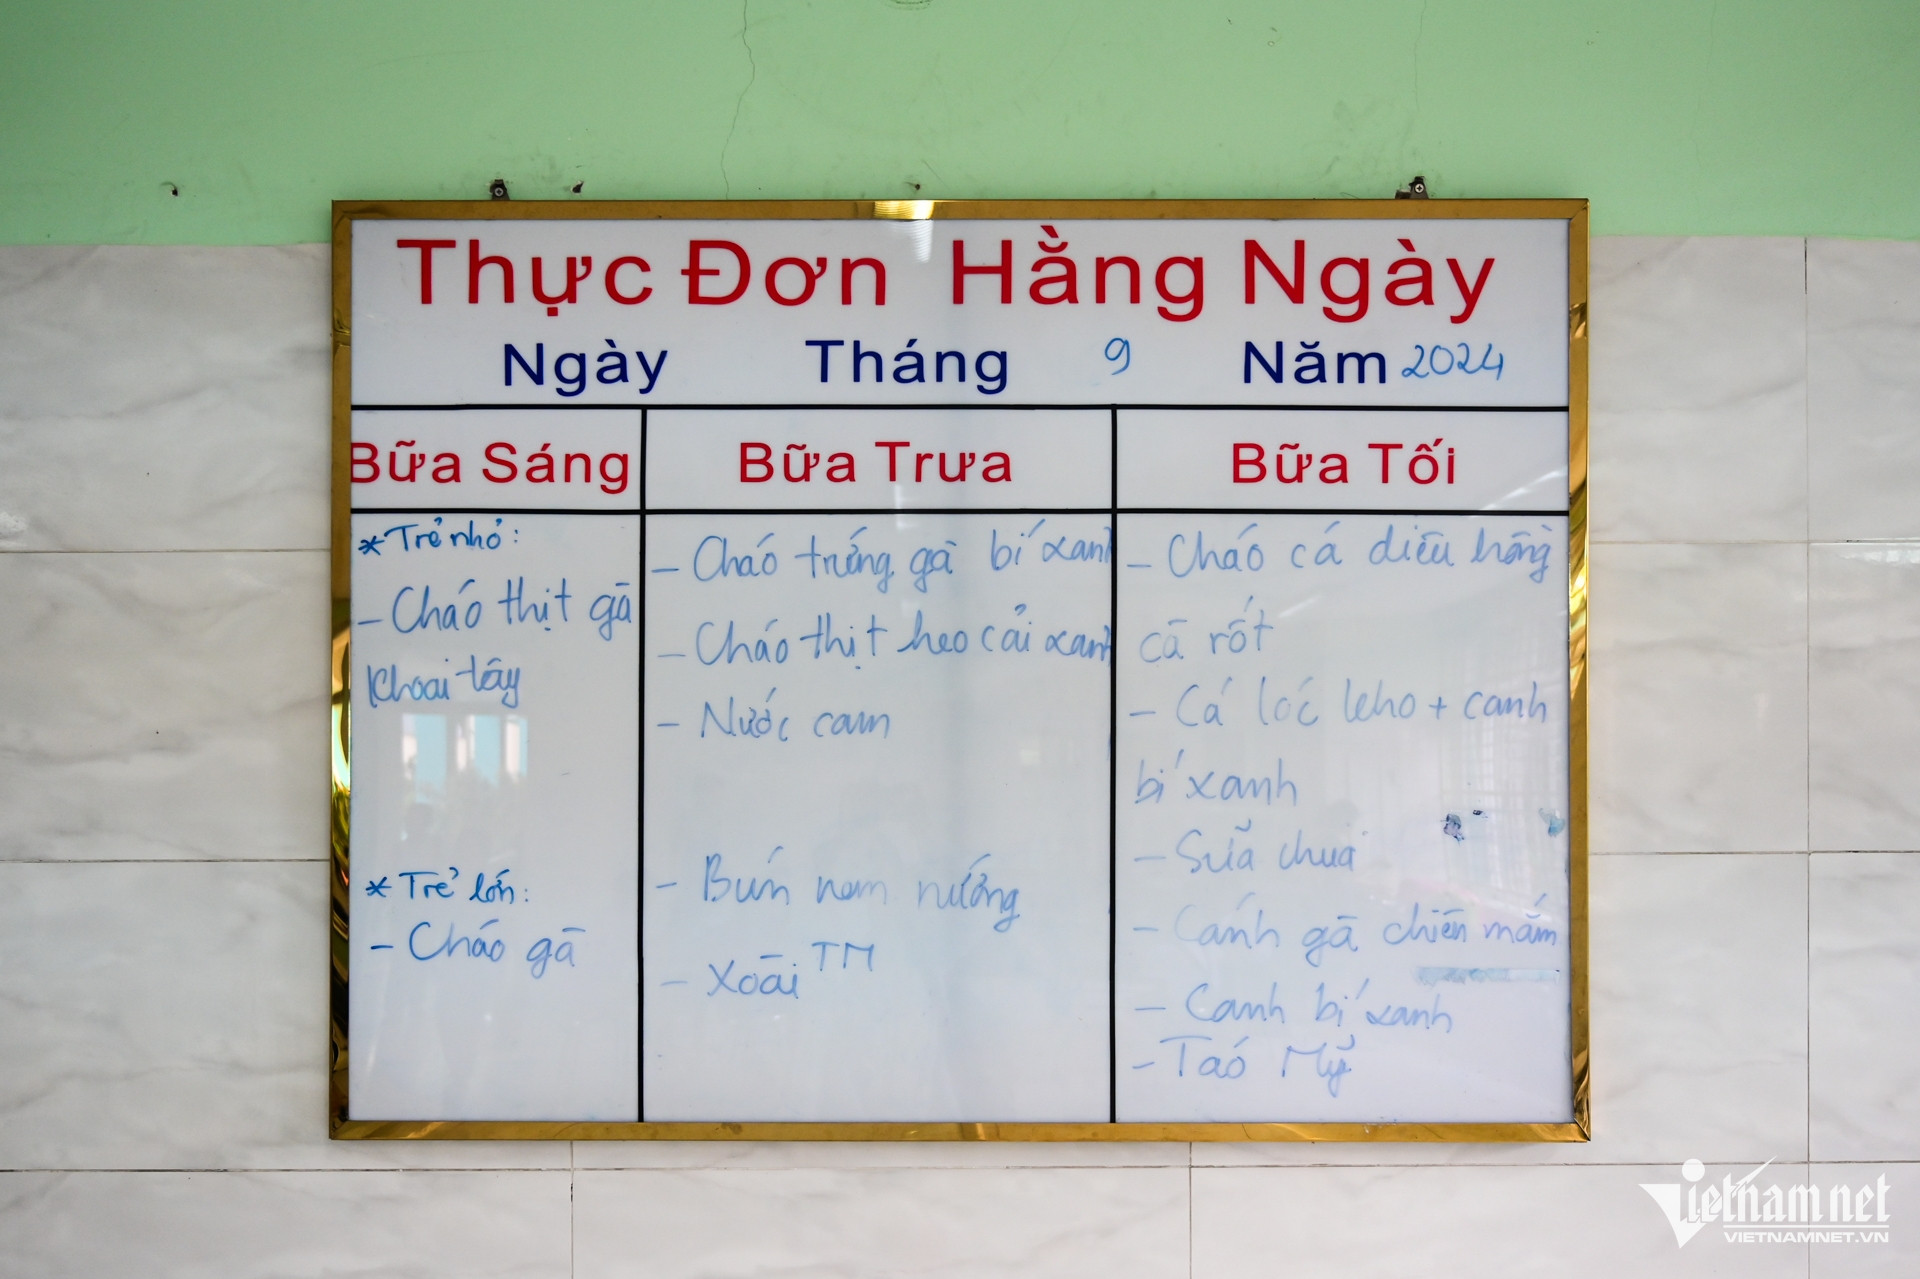 Thực Đơn Hằng Ngày
Ngày Tháng 9 Năm 2024
Bữa Sáng
* Trẻ nhỏ:
- Cháo thịt gà
khoai tây
* Trẻ lớn:
- Cháo gà
Bữa Trưa
- Cháo trứng gà bí xanh
- Cháo thịt heo cải xanh
- Nước cam
- Bún nem nướng
- Xoài TM
Bữa Tối
- Cháo cá diêu hồng
cà rốt
- Cá lóc kho + canh
bí xanh
- Sữa chua
- Cánh gà chiên mắm
- Canh bí xanh
- Táo Mỹ
Vietnamnet
VIETNAMNET.VN